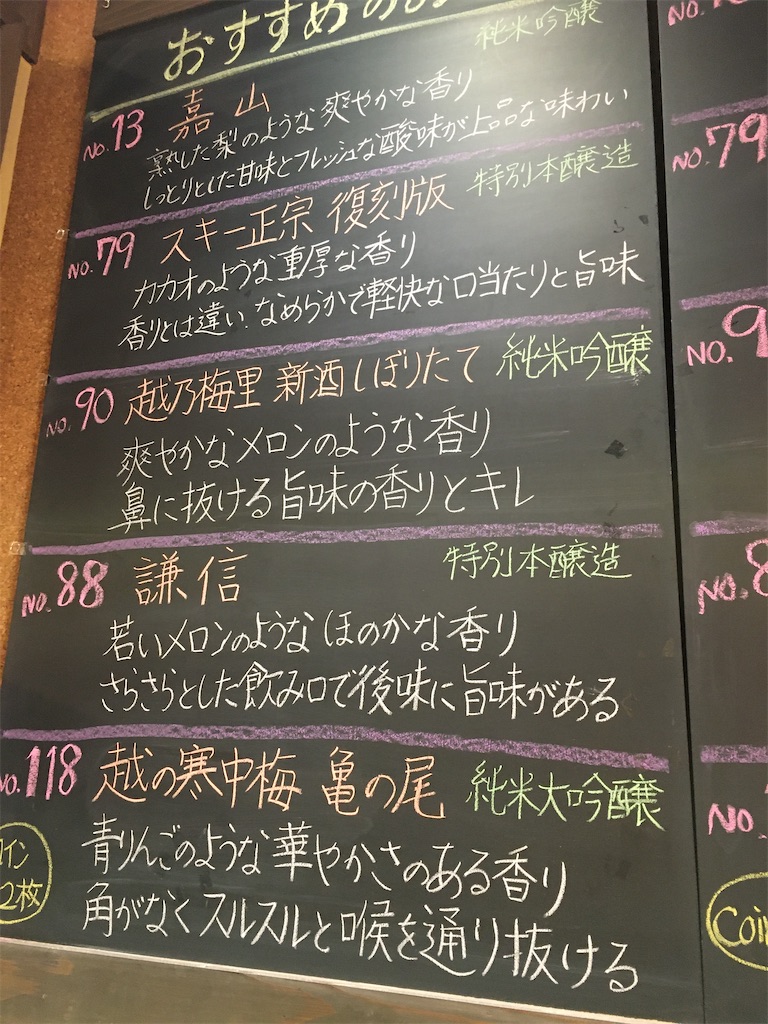 おすすめの
純米吟醸
No.13 嘉山
熟した梨のような爽やかな香り
しっとりとした甘味とフレッシュな酸味が上品な味わい
特別本醸造
No.79 スキー正宗 復刻版
カカオのような重厚な香り
香りとは違い、なめらかで軽快な口当たりと旨味
No.90 越乃梅里 新酒しぼりたて 純米吟醸
爽やかなメロンのような香り
鼻に抜ける旨味の香りとキレ
No.88 謙信 特別本醸造
若いメロンのようなほのかな香り
さらさらとした飲み口で後味に旨味がある
No.118 越の寒中梅 亀の尾 純米大吟醸
青りんごのような華やかさのある香り
角がなくスルスルと喉を通り抜ける
コイン
2枚
No.
No.79
No.9
No.8
No.
Coin